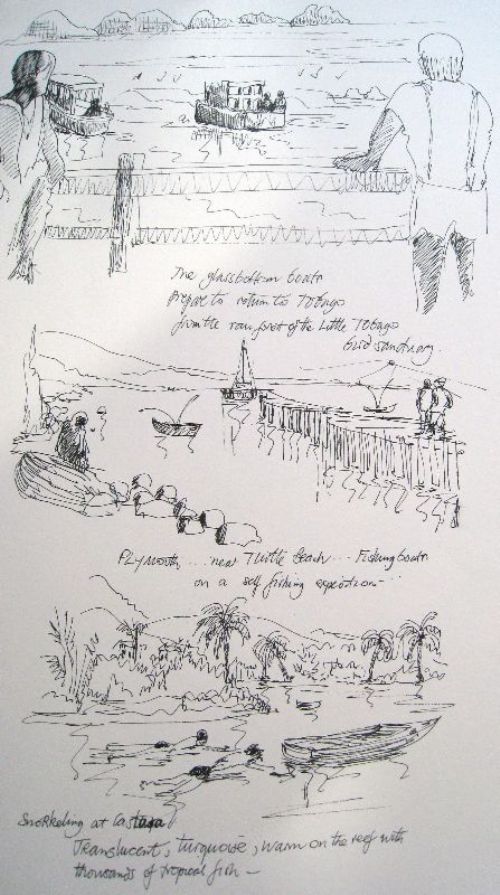 The glassbottom boats
prepare to return to Tobago
from the rainforest of the Little Tobago
bird sanctuary.
Plymouth... near Turtle Beach... Fishing boats
on a self fishing expedition...
Snorkeling at Castara
Translucent, turquoise, warm on the reef with
thousands of tropical fish —